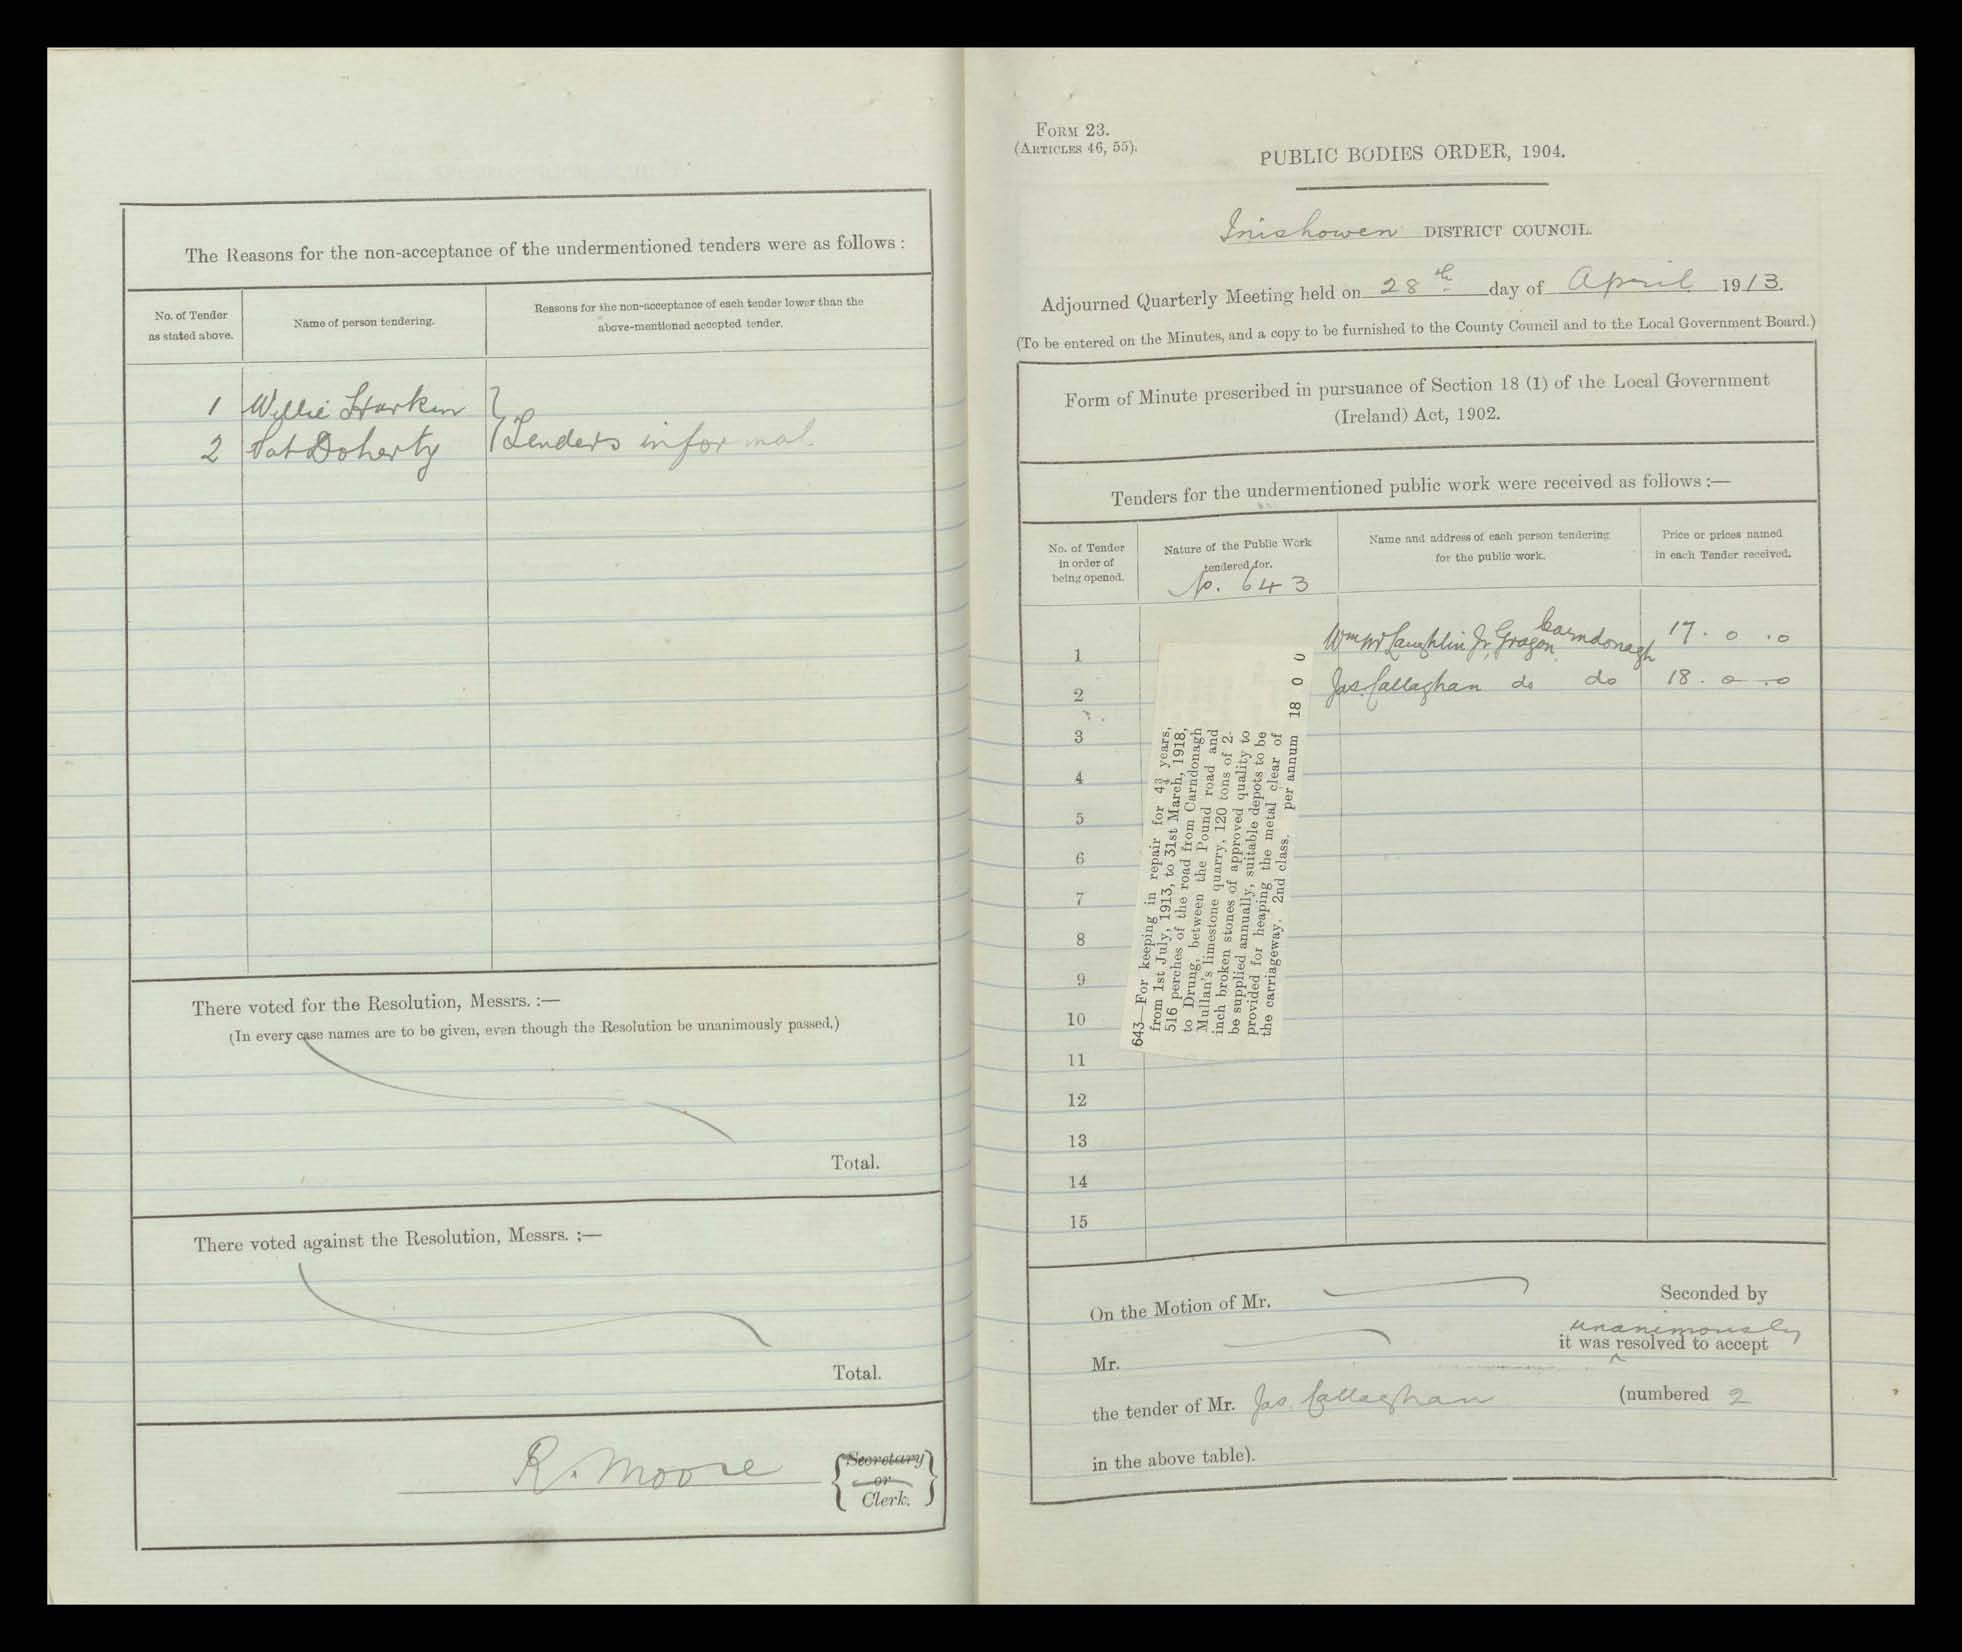 The Reasons for the non-acceptance of the undermentioned tenders were as follows :
No. of Tender as stated above.
Name of person tendering.
Reasons for the non-acceptance of each tender lower than the above-mentioned accepted tender.
1 Willie Harkin
2 Pat Doherty
} Tenders informal
There voted for the Resolution, Messrs. :—
(In every case names are to be given, even though the Resolution be unanimously passed.)
Total.
There voted against the Resolution, Messrs. :—
Total.
R. Moore
{Secretary
or
Clerk.}
FORM 23.
(ARTICLES 46, 55).
PUBLIC BODIES ORDER, 1904.
Inishowen DISTRICT COUNCIL.
Adjourned Quarterly Meeting held on 28th day of April 1913.
(To be entered on the Minutes, and a copy to be furnished to the County Council and to the Local Government Board.)
Form of Minute prescribed in pursuance of Section 18 (1) of the Local Government
(Ireland) Act, 1902.
Tenders for the undermentioned public work were received as follows :—
No. of Tender in order of being opened.
Nature of the Public Work tendered for.
No. 643
Name and address of each person tendering for the public work.
Price or prices named in each Tender received.
1 Wm McLaughlin Jr, Carndonagh 17 . 0 . 0
2 Jas. Callaghan do do 18 . 0 . 0
3
4
5
6
7
8
9
10
11
12
13
14
15
643—For keeping in repair for 4¾ years,
from 1st July, 1913, to 31st March, 1918,
516 perches of the road from Carndonagh
to Drung, between the Pound road and
Mullan's limestone quarry, 120 tons of 2-
inch broken stones of approved quality to
be supplied annually, suitable depots to be
provided for heaping the metal clear of
the carriageway. 2nd class. per annum 18 0 0
On the Motion of Mr. Seconded by
unanimously
Mr. it was ^ resolved to accept
the tender of Mr. Jas. Callaghan (numbered 2
in the above table).